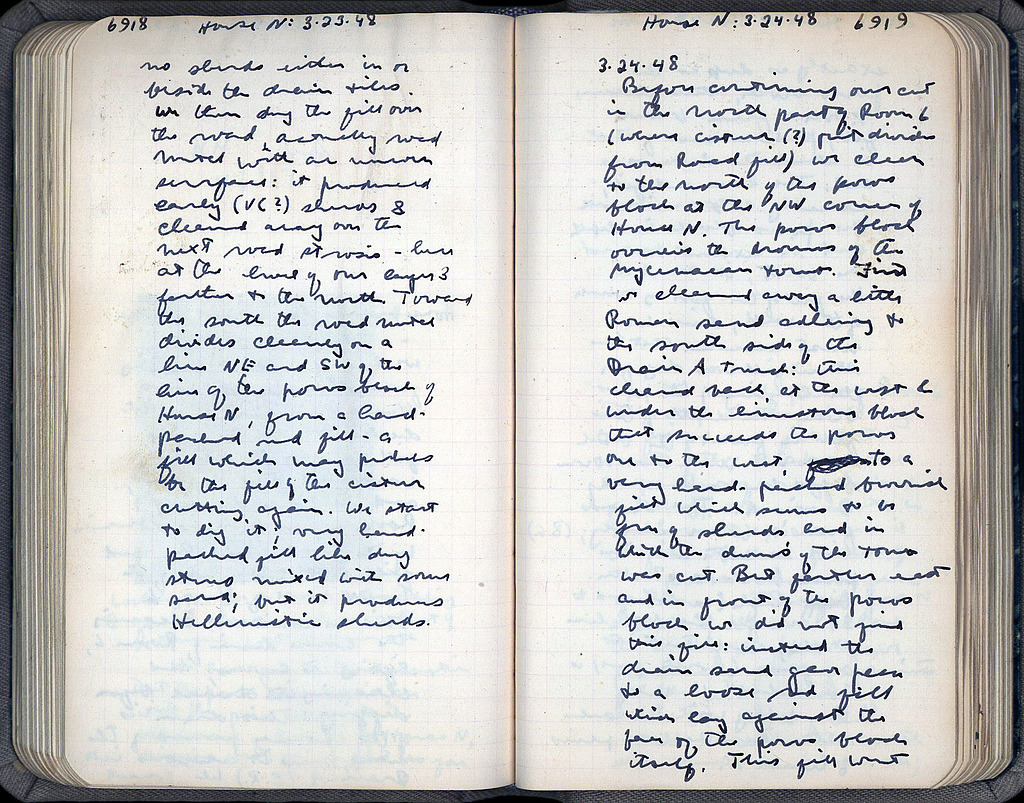 6918 House N: 3.23.48
no sherds either in or
beside the drain tiles.
We then dug the fill over
the road, actually road
metal with an uneven
surface: it produced
early (VC?) sherds &
cleaned away over the
next road strosis - here
at the level of our layer 3
farther to the north. Toward
the south the road metal
divides cleanly on a
line NE and SW of the
line of the poros blocks of
House N, from a hard-
packed red fill - a
fill which may perhaps
be the fill of the cistern
cutting again. We start
to dig it, very hard-
packed fill like dug
stereo mixed with some
sand; but it produces
Hellenistic sherds.
House N: 3.24.48 6919
3.24.48
Before continuing our cut
in the north part of Room 6
(where cistern (?) fill divides
from Road fill) we clean
to the north of the poros
block at the NW corner of
House N. The poros block
overlies the dromos of the
Mycenaean tomb. First
we cleaned away a little
Roman sand adhering to
the south side of the
Drain A trench: this
cleared back at the west
under the limestone block
that succeeds the poros
one to the west, to a
very hard-packed brownish
fill which seems to be
free of sherds and in
which the dromos of the tomb
was cut. But farther east
and in front of the poros
block we did not find
this fill: instead the
drain sand gave place
to a loose red fill
which lay against the
face of the poros block
itself. This fill went